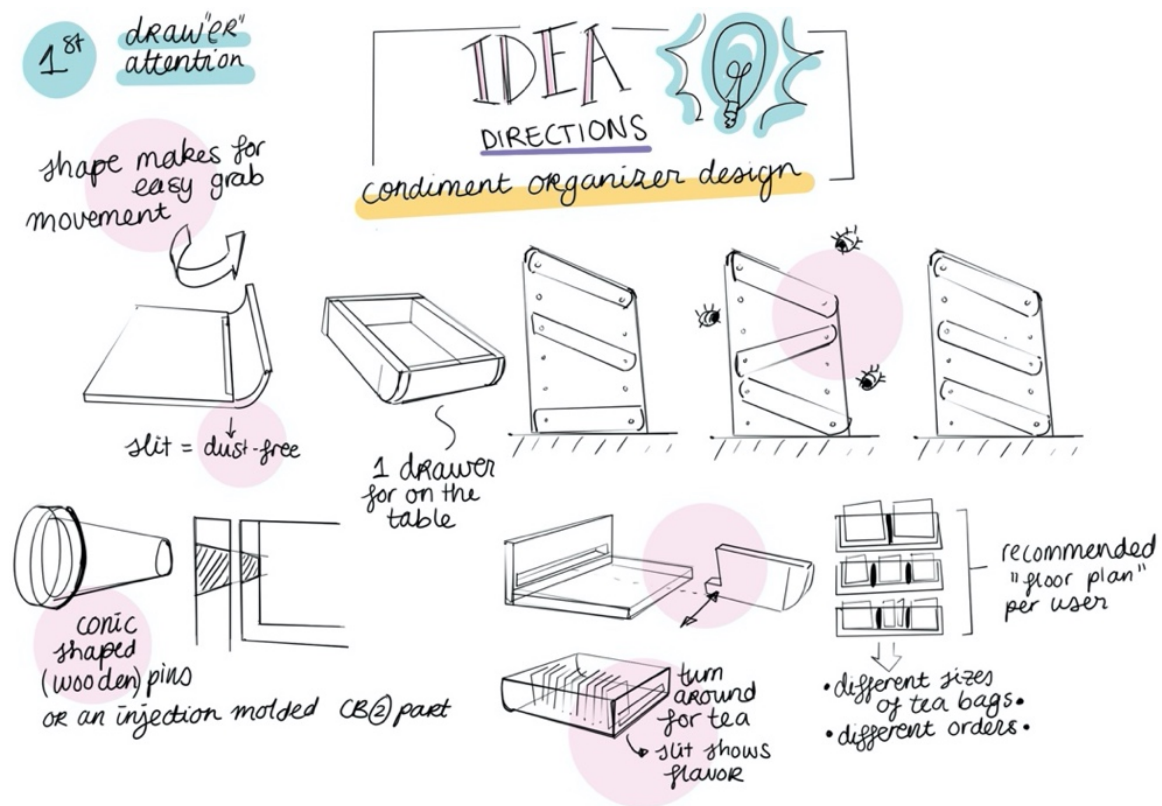 1st
draw"er"
attention
IDEA
DIRECTIONS
condiment organizer design
shape makes for
easy grab
movement
slit = dust-free
1 drawer
for on the
table
conic
shaped
(wooden) pins
or an injection molded CB② part
turn
around
for tea
slit shows
flavor
recommended
"floor plan"
per user
• different sizes
of tea bags •
• different orders •